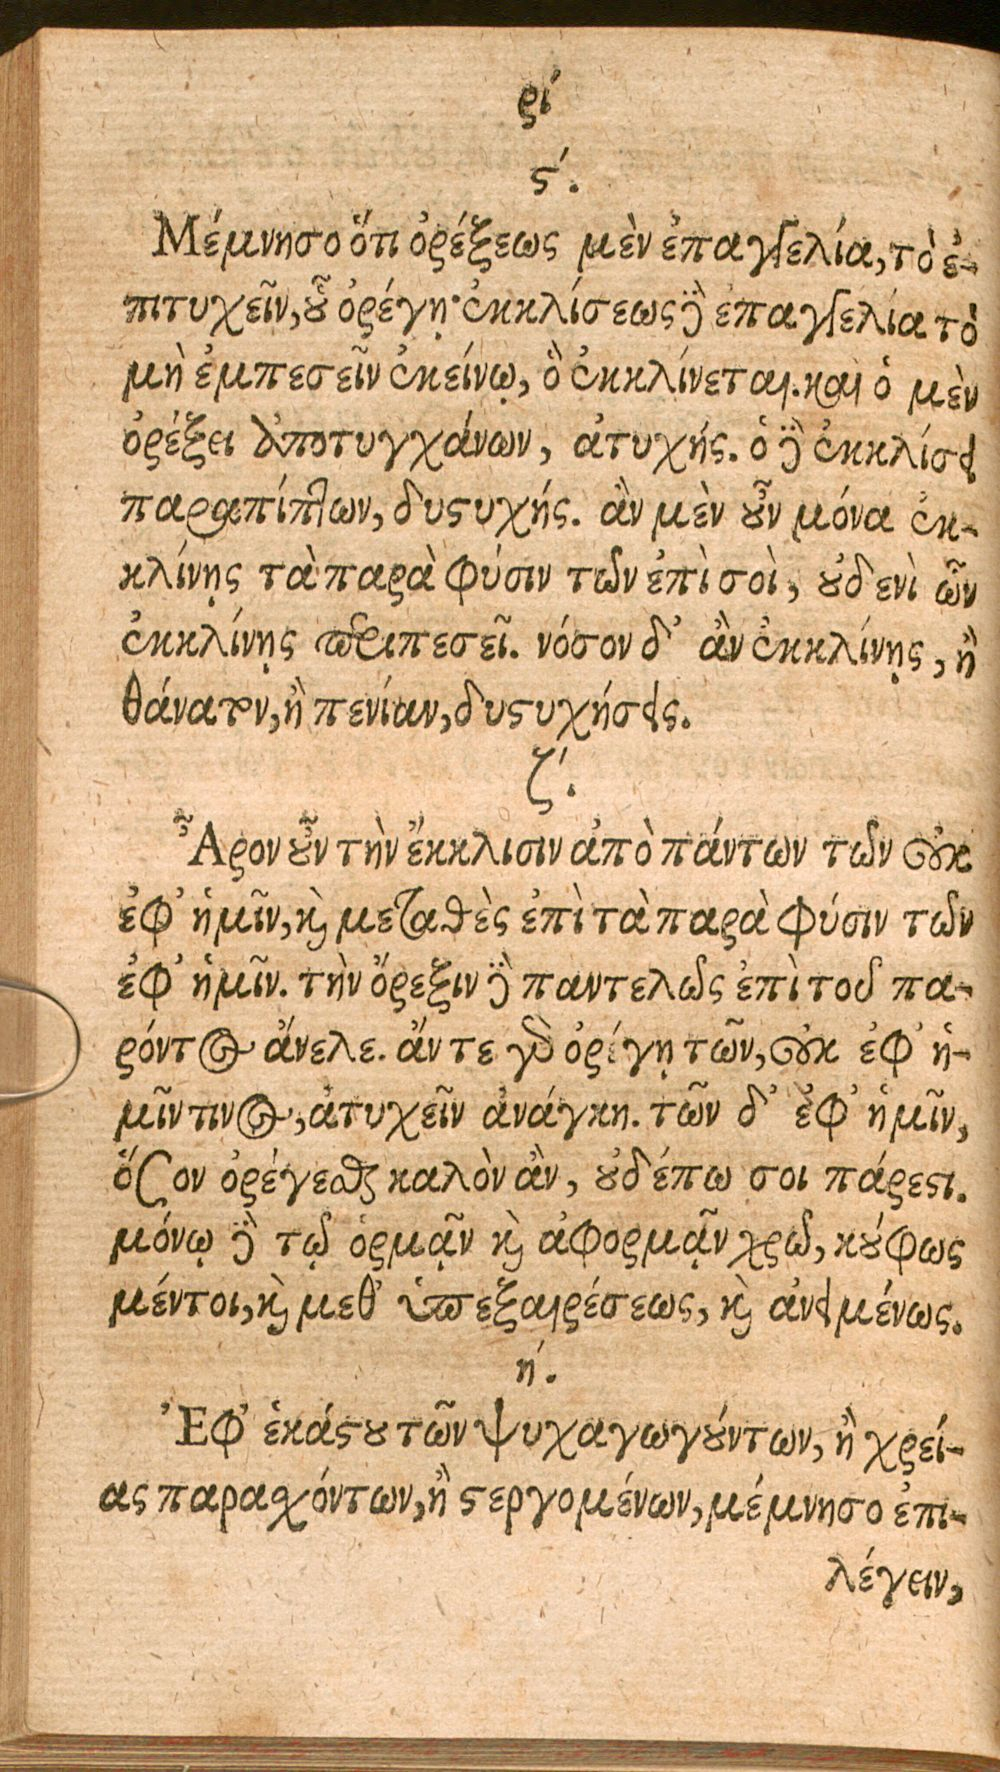 ρι´
ϛ´.
Μέμνησο ὅτι ὀρέξεως μὲν ἐπαγγελία, τὸ ἐ-
πιτυχεῖν, οὗ ὀρέγῃ· ἐκκλίσεως δὲ ἐπαγγελία τὸ
μὴ ἐμπεσεῖν ἐκείνῳ, ὃ ἐκκλίνεται. καὶ ὁ μὲν
ὀρέξει ἀποτυγχάνων, ἀτυχής. ὁ δὲ ἐκκλίσει
παραπίπτων, δυστυχής. ἂν μὲν οὖν μόνα ἐκ-
κλίνῃς τὰ παρὰ φύσιν τῶν ἐπὶ σοὶ, οὐδενὶ ὧν
ἐκκλίνῃς περιπεσεῖ. νόσον δ' ἂν ἐκκλίνῃς, ἢ
θάνατον, ἢ πενίαν, δυστυχήσεις.
ζ´.
Ἆρον οὖν τὴν ἔκκλισιν ἀπὸ πάντων τῶν οὐκ
ἐφ' ἡμῖν, καὶ μετάθες ἐπὶ τὰ παρὰ φύσιν τῶν
ἐφ' ἡμῖν. τὴν ὄρεξιν δὲ παντελῶς ἐπὶ τοῦ πα-
ρόντος ἄνελε. ἄν τε γὰρ ὀρέγῃ τῶν, οὐκ ἐφ' ἡ-
μῖν τινος, ἀτυχεῖν ἀνάγκη. τῶν δ' ἐφ' ἡμῖν,
ὅσον ὀρέγεσθαι καλὸν ἂν, οὐδέπω σοι πάρεστι.
μόνῳ δὲ τῷ ὁρμᾷν καὶ ἀφορμᾷν χρῶ, κούφως
μέντοι, καὶ μεθ' ὑπεξαιρέσεως, καὶ ἀνειμένως.
η´.
Ἐφ' ἑκάστου τῶν ψυχαγωγούντων, ἢ χρεί-
ας παραχόντων, ἢ στεργομένων, μέμνησο ἐπι-
λέγειν,